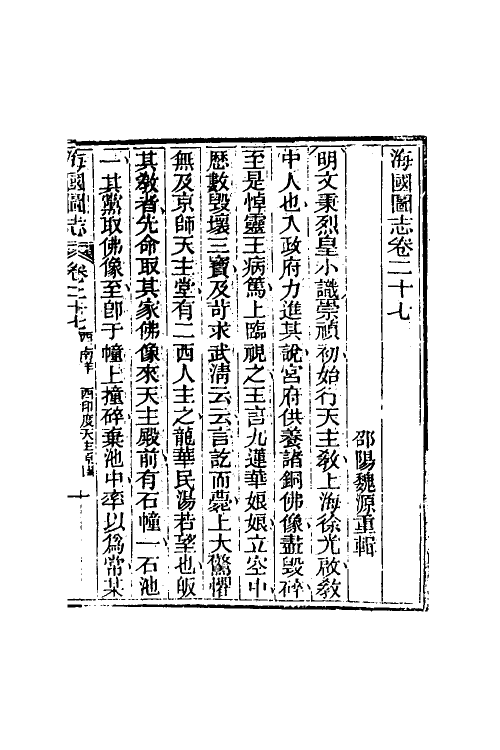 海國圖志卷二十七
邵陽魏源重輯
明文秉烈皇小識崇禎初始行天主教上海徐光啟教
中人也入政府力進其說宮府供養諸銅佛像盡毀碎
至是悼靈王病篤上臨視之王言九蓮華娘娘立空中
歷數毀壞三寶及苛求武清云云言訖而薨上大驚懼
無及京師天主堂有二西人主之龍華民湯若望也皈
其教者先命取其家佛像來天主殿前有石幢一石池
一其黨取佛像至卽于幢上撞碎棄池中率以爲常某
海國圖志 卷二十七 西南洋 西印度天主